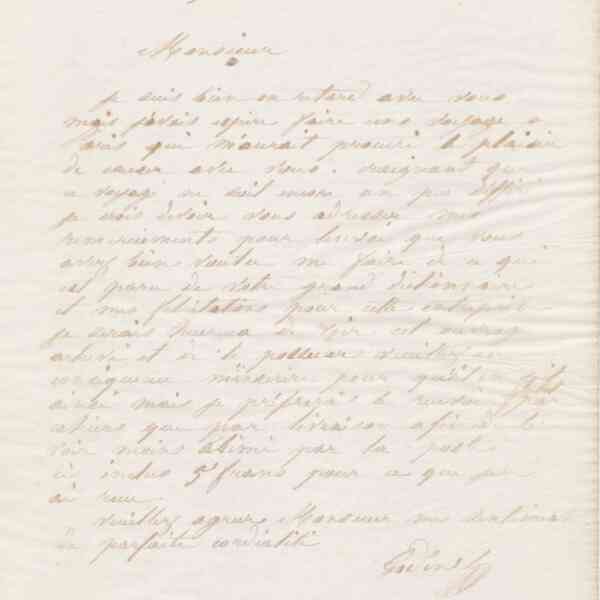 Monsieur
je suis bien en retard avec vous
mais j'avais espéré faire une voyage a
Paris qui m'aurait procuré le plaisir
de causer avec vous. craignant que
ce voyage ne soit encore un peu différé
je crois devoir vous adresser mes
remerciements pour l'envoi que vous
avez bien voulu me faire de ce qui
est paru de votre grand dictionnaire
et mes félicitations pour cette entreprise
je serais heureux de voir cet ouvrage
achevé et de le posseder veuillez en
conséquence m'inscrire pour qu'il en soit
ainsi mais je préférerais le recevoir par
cahiers que par livraison afin de le
voir moins abimé par la poste
ci inclus 5f francs pour ce que j'ai
ai reçu.
veuillez agréer, Monsieur mes sentiments
de parfaite cordialité